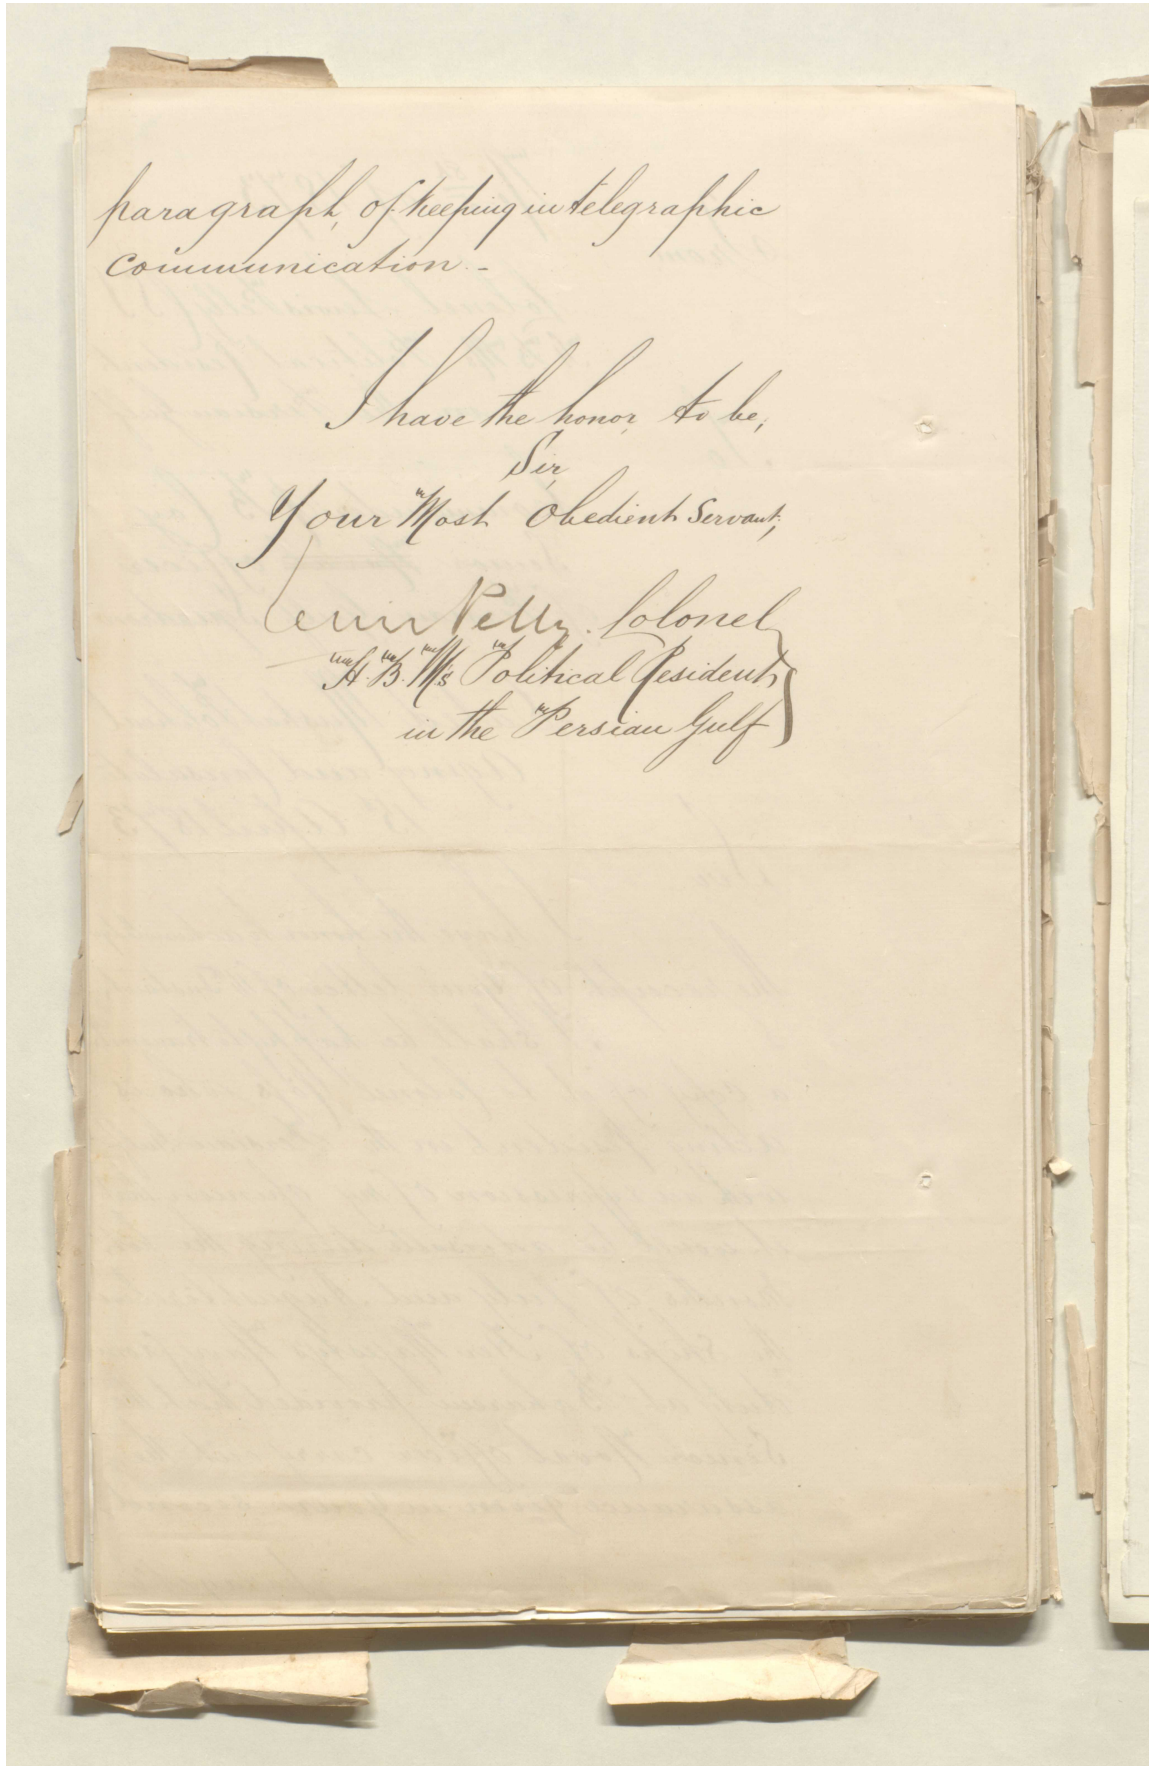 paragraph, of keeping in telegraphic
communication.-
I have the honor to be,
Sir,
Your Most Obedient Servant,
Lewis Pelly. Colonel
H. B. M's Political Resident
in the Persian Gulf